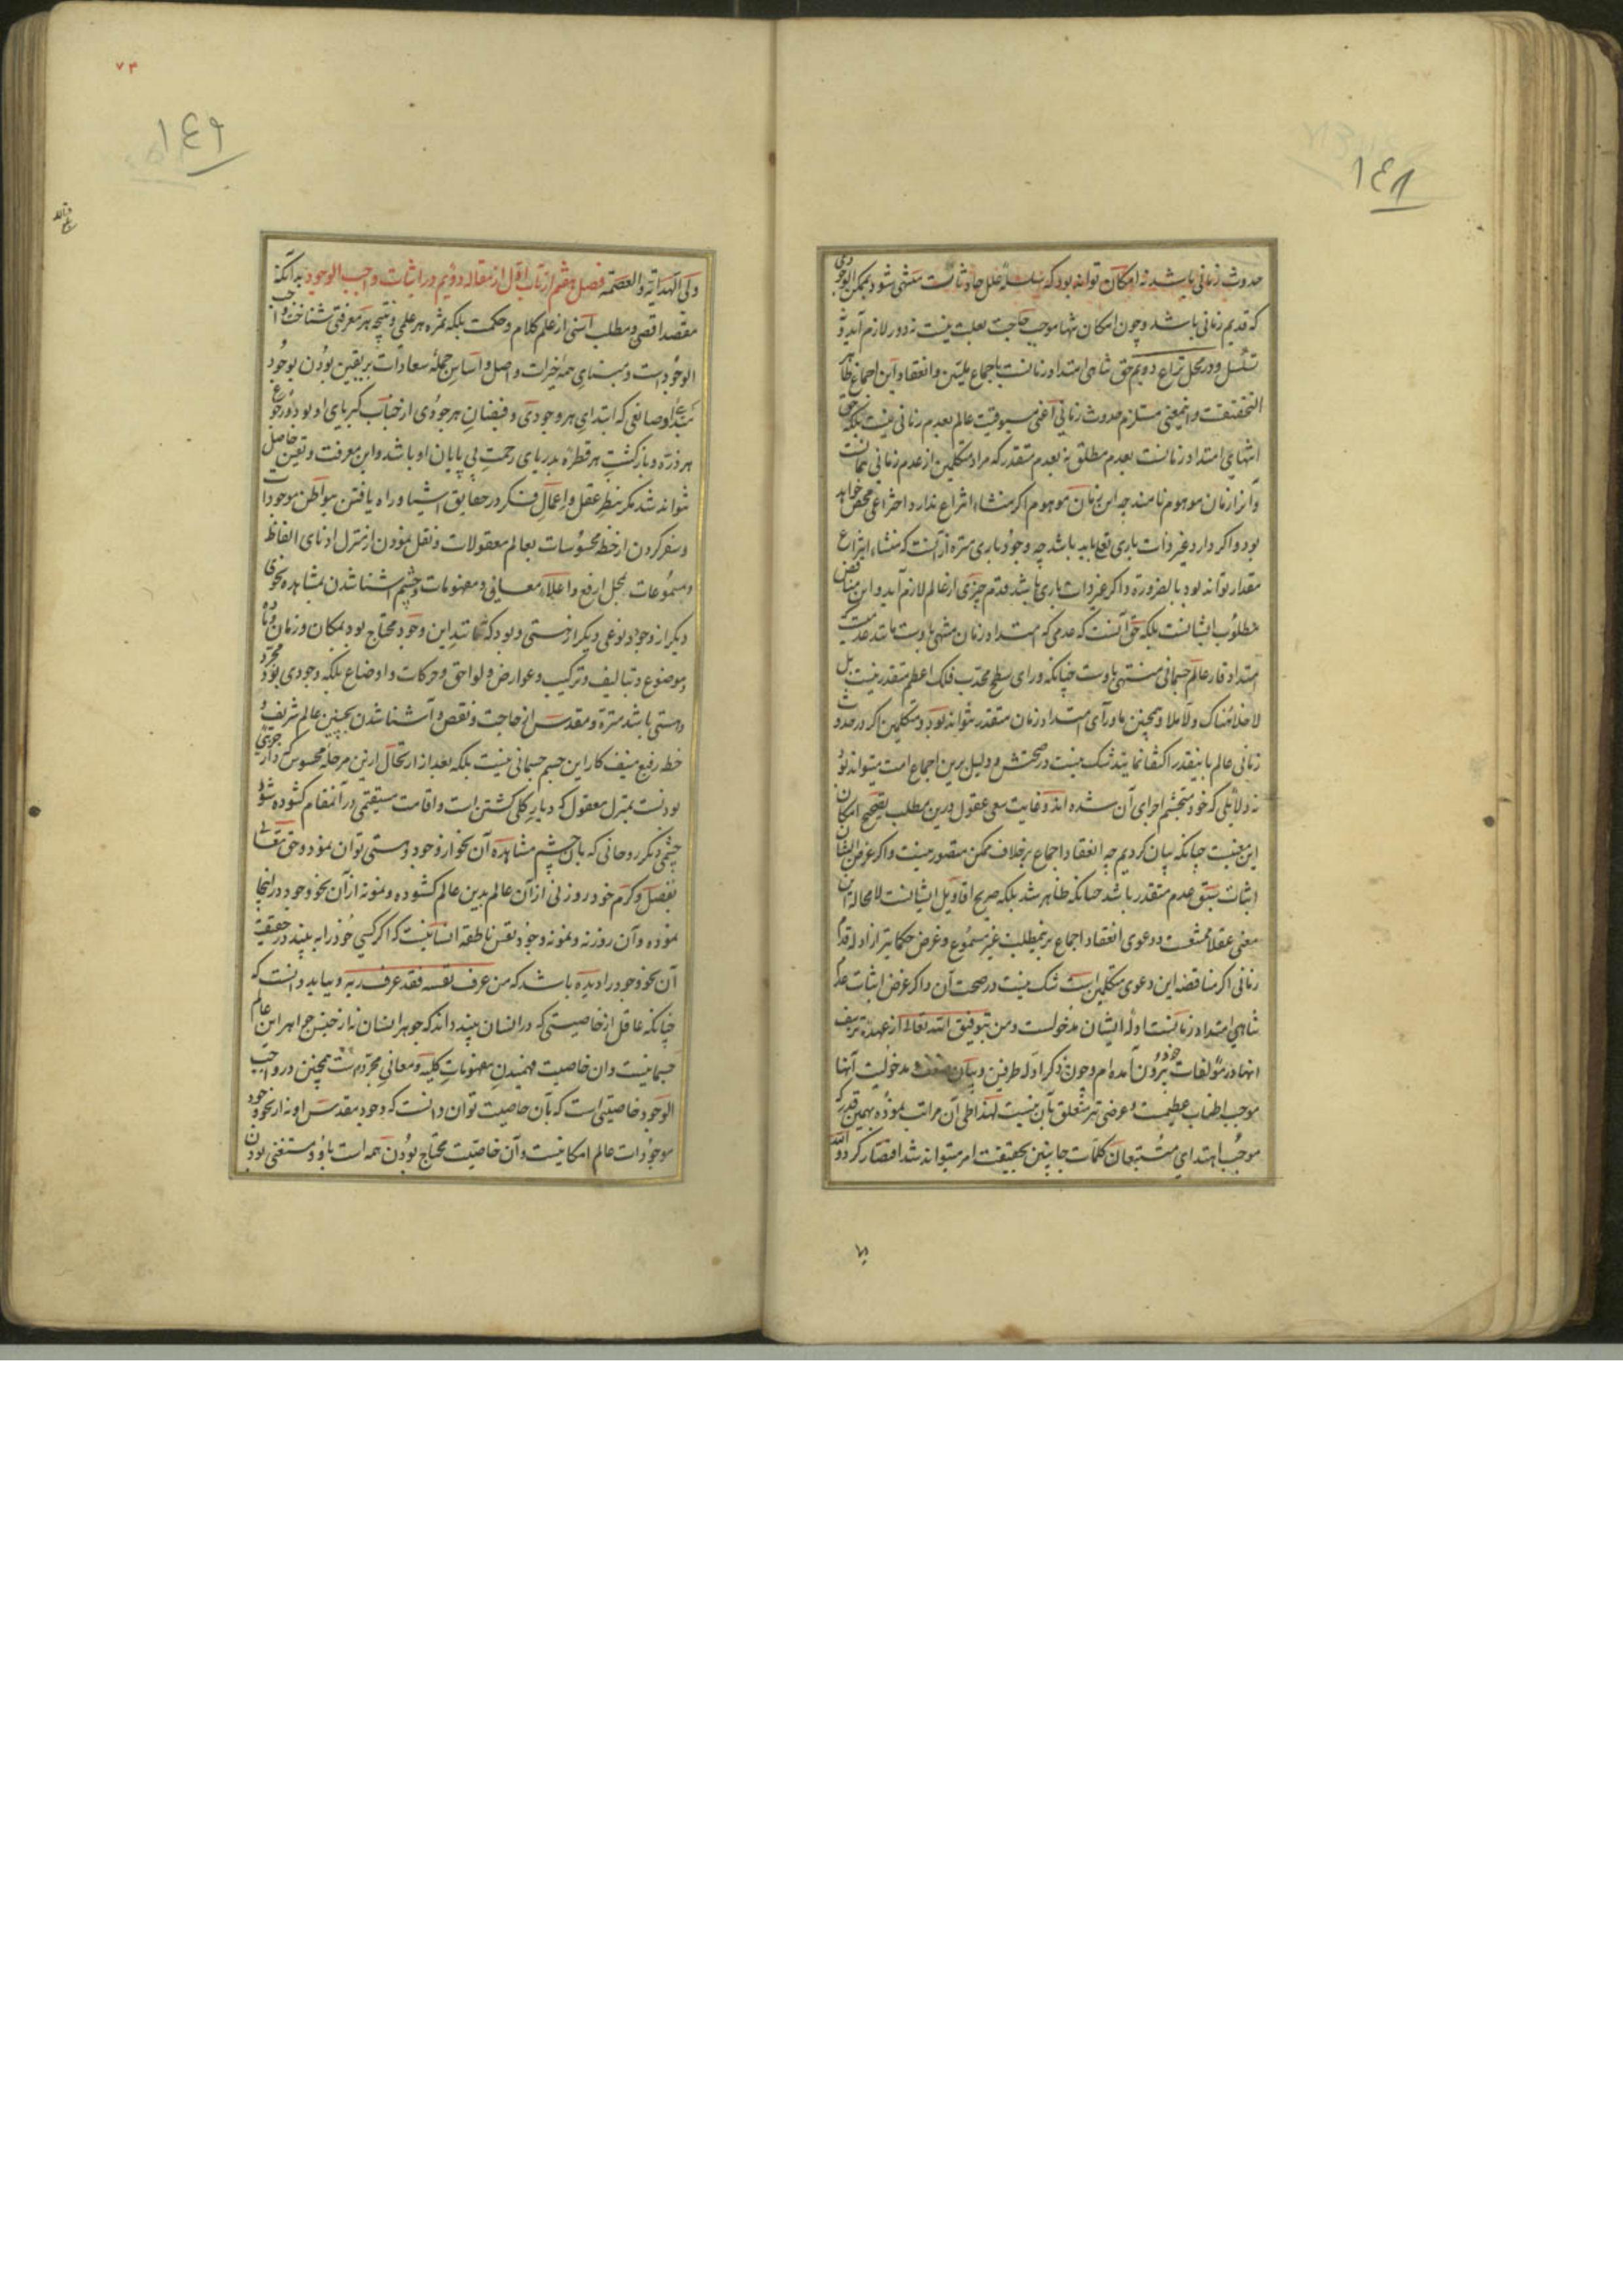 ١٤٨
حدوث زمانی باشد نه امکان تواند بود که سلسلهٔ علل حادثانست منتهی شود بممکن الوجودی
که قدیم زمانی باشد و چون امکان تنها موجب حاجت بعلت نیست نه دور لازم آید و نه
تسلسل و در محل نزاع دویم حق تناهی امتداد زمانست باجماع ملیین و انعقاد این اجماع ظاهر
التحقیقت و اینمعنی مستلزم حدوث زمانی اعنی مسبوقیت عالم بعدم زمانی نیست بلکه حق
انتهای امتداد زمانست بعدم مطلق نه بعدم متقدر که مراد متکلمین از عدم زمانی همانست
و آنرا زمان موهوم نامند چه این زمان موهوم اگر منشاء انتزاع ندارد اختراعی محض خواهد
بود و اگر دارد غیر ذات باری تعالی باید باشد چه وجود باری منزه از آنست که منشاء انتزاع
مقدار تواند بود بالضرورة و اگر غیر ذات باری باشد قدم چیزی از عالم لازم آید و این مناقض
مطلوب ایشانست بلکه حق آنست که عدمی که امتداد زمان منتهی باوست مانند عدمیست که
امتداد قار عالم جسمانی منتهی باوست چنانکه ورای سطح محدب فلک اعظم متقدر نیست بل
لا خلا هناک و لا ملا و همچنین ماورای امتداد زمان متقدر نتواند بود و متکلمین اگر در حدوث
زمانی عالم باینقدر اکتفا نمایند شک نیست در صحتش و دلیل برین اجماع امت میتواند بود
نه دلائلی که خود متجشم اجرای آن شده اند و غایت سعی عقول درین مطلب تصحیح امکان
این معنیست چنانکه بیان کردیم چه انعقاد اجماع بر خلاف ممکن متصور نیست و اگر غرض ایشان
اثبات سبق عدم متقدر باشد چنانکه ظاهر شد بلکه صریح اقاویل ایشانست لا محاله این
معنی عقلا ممتنعست و دعوی انعقاد اجماع بر اینمطلب غیر مسموع و غرض حکما نیز از ادله قدم
زمانی اگر مناقضه این دعوی متکلمین است شک نیست در صحت آن و اگر غرض اثبات عدم
تناهی امتداد زمانست ادلهٔ ایشان مدخولست و من بتوفیق الله تعالی از عهدهٔ تزییف
انها در مؤلفات خود بیرون آمده ام و چون ذکر ادله طرفین و بیان مدخولیت آنها
موجب اطناب عظیمست و غرضی نیز متعلق بآن نیست لهذا طی آن مراتب نموده بهمین قدر که
موجب اهتدای متتبعان کلمات جانبین بحقیقت امر میتواند شد اقتصار کرد و الله
٧٣
١٤٩
ولی الهدایة و العصمة فصل هشتم از باب اول از مقاله دویم در اثبات واجب الوجود بدانکه
مقصد اقصی و مطلب اسنی از علم کلام و حکمت بلکه ثمره هر علمی و نتیجه هر معرفتی شناخت واجب
الوجود است و مبنای همهٔ خیرات و اصل و اساس جملهٔ سعادات بر یقین بودن بوجود
مبدأ و صانعی که ابتدای هر وجودی و فیضان هر جودی از جناب کبریای او بود و رجوع
هر ذرّه و بازگشت هر قطرهٔ بدریای رحمت بی پایان او باشد و این معرفت و یقین حاصل
نتواند شد مگر بنظر عقل و اعمال فکر در حقایق اشیا و راه یافتن بمواطن موجودات
و سفر کردن از خطهٔ محسوسات بعالم معقولات و نقل نمودن از منزل ادنای الفاظ
و مسموعات بمحل ارفع و اعلاء معانی و مفهومات و چشم آشنا شدن بمشاهده نحوی
دیگر از وجود و نوعی دیگر از هستی و بود که نه مانند این وجود محتاج بود بمکان و زمان و ماده
و موضوع و تبالیف و ترکیب و عوارض و لواحق و حرکات و اوضاع بلکه وجودی بود مجرد
و هستی باشد منزه و مقدس از حاجت و نقص و آشنا شدن بچنین عالم شریف و
خطهٔ رفیع منیف کار این چشم جسمانی نیست بلکه بعد از ارتحال از این مرحلهٔ محسوس که دار جزئی
بودنست بمنزل معقول که دیار کلی گشتن است و اقامت مستقیمی در آنمقام گشوده شود
چشمی دیگر روحانی که بآن چشم مشاهده آن نحو از وجود و هستی توان نمود و حق تعالی
بفضل و کرم خود روزنی از آن عالم بدین عالم گشوده و نمونهٔ از آن نحو وجود در اینجا
نموده و آن روزنه و نمونه وجود نفس ناطقه انسانیست که اگر کسی خود را به بیند در حقیقت
آن نحو وجود را دیده باشد که من عرف نفسه فقد عرف ربه و بباید دانست که
چنانکه عاقل از خاصیتی که در انسان بیند داند که جوهر انسان نه از جنس جواهر این عالم
جسمانیست و آن خاصیت فهمیدن مفهومات کلیه و معانی مجرده است همچنین در واجب
الوجود خاصیتی است که بآن خاصیت توان دانست که وجود مقدس او نه از نحو وجود
موجودات عالم امکانیست و آن خاصیت محتاج بودن همه است باو و مستغنی بودن